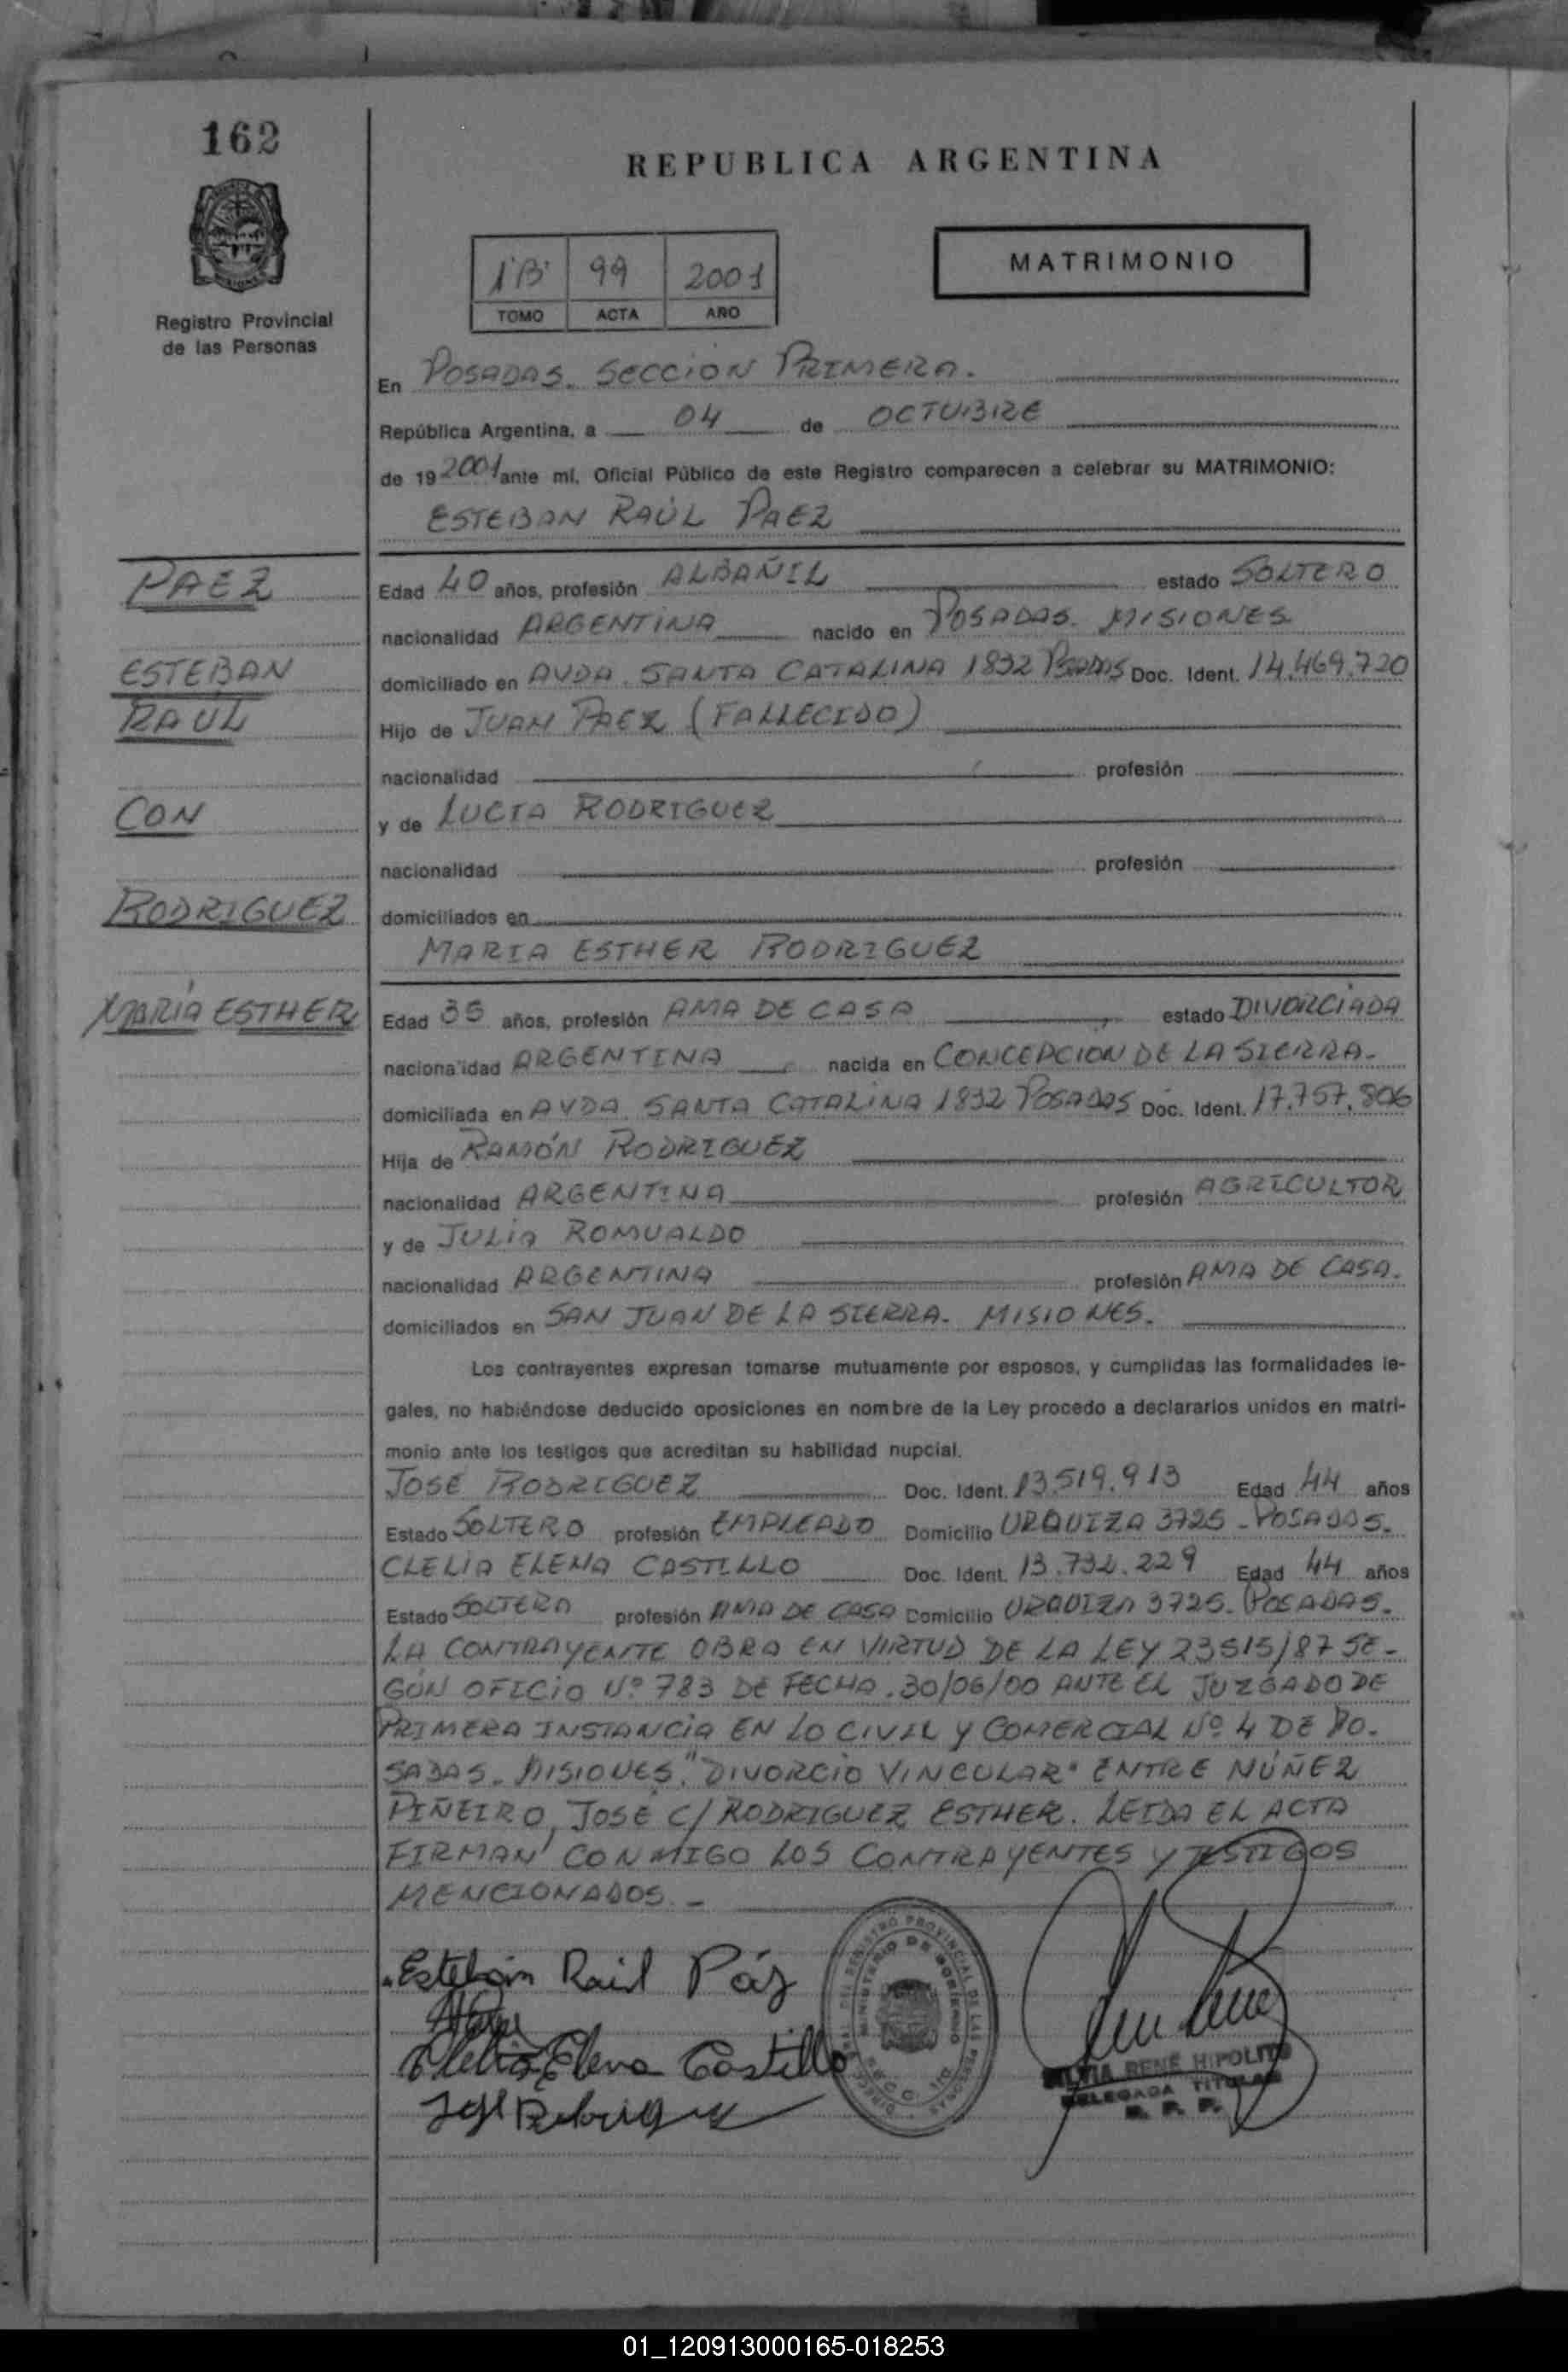 162
REPUBLICA ARGENTINA
Registro Provincial
de las Personas
1'B' 99 2001
TOMO ACTA AÑO
MATRIMONIO
En POSADAS. SECCION PRIMERA.
República Argentina, a 04 de OCTUBRE
de 19 2001 ante mí, Oficial Público de este Registro comparecen a celebrar su MATRIMONIO:
ESTEBAN RAÚL PAEZ
PAEZ
ESTEBAN
RAUL
CON
RODRIGUEZ
MARÍA ESTHER
Edad 40 años, profesión ALBAÑIL estado SOLTERO
nacionalidad ARGENTINA nacido en POSADAS. MISIONES
domiciliado en AVDA. SANTA CATALINA 1832 POSADAS Doc. Ident. 14.469.720
Hijo de JUAN PAEZ (FALLECIDO)
nacionalidad profesión
y de LUCIA RODRIGUEZ
nacionalidad profesión
domiciliados en
MARIA ESTHER RODRIGUEZ
Edad 35 años, profesión AMA DE CASA estado DIVORCIADA
nacionalidad ARGENTINA nacida en CONCEPCION DE LA SIERRA-
domiciliada en AVDA. SANTA CATALINA 1832 POSADAS Doc. Ident. 17.757.806
Hija de RAMÓN RODRIGUEZ
nacionalidad ARGENTINA profesión AGRICULTOR
y de JULIA ROMUALDO
nacionalidad ARGENTINA profesión AMA DE CASA.
domiciliados en SAN JUAN DE LA SIERRA- MISIONES.
Los contrayentes expresan tomarse mutuamente por esposos, y cumplidas las formalidades le-
gales, no habiéndose deducido oposiciones en nombre de la Ley procedo a declararlos unidos en matri-
monio ante los testigos que acreditan su habilidad nupcial.
JOSE RODRIGUEZ Doc. Ident. 13.519.913 Edad 44 años
Estado SOLTERO profesión EMPLEADO Domicilio URQUIZA 3725 - POSADAS.
CLELIA ELENA CASTILLO Doc. Ident. 13.732.229 Edad 44 años
Estado SOLTERA profesión AMA DE CASA Domicilio URQUIZA 3725- POSADAS.
LA CONTRAYENTE OBRA EN VIRTUD DE LA LEY 23515/87 SE-
GÚN OFICIO Nº 783 DE FECHA. 30/06/00 ANTE EL JUZGADO DE
PRIMERA INSTANCIA EN LO CIVIL Y COMERCIAL Nº 4 DE PO-
SADAS. MISIONES. "DIVORCIO VINCULAR" ENTRE NÚÑEZ
PIÑEIRO, JOSÉ C/ RODRIGUEZ ESTHER. LEIDA EL ACTA
FIRMAN CONMIGO LOS CONTRAYENTES Y TESTIGOS
MENCIONADOS.-
Esteban Raul Páz
Clelia Elena Castillo
José Rodriguez
MINISTERIO DE GOBIERNO
SILVIA RENÉ HIPOLITO
DELEGADA TITULAR
R. P. P.
01_120913000165-018253